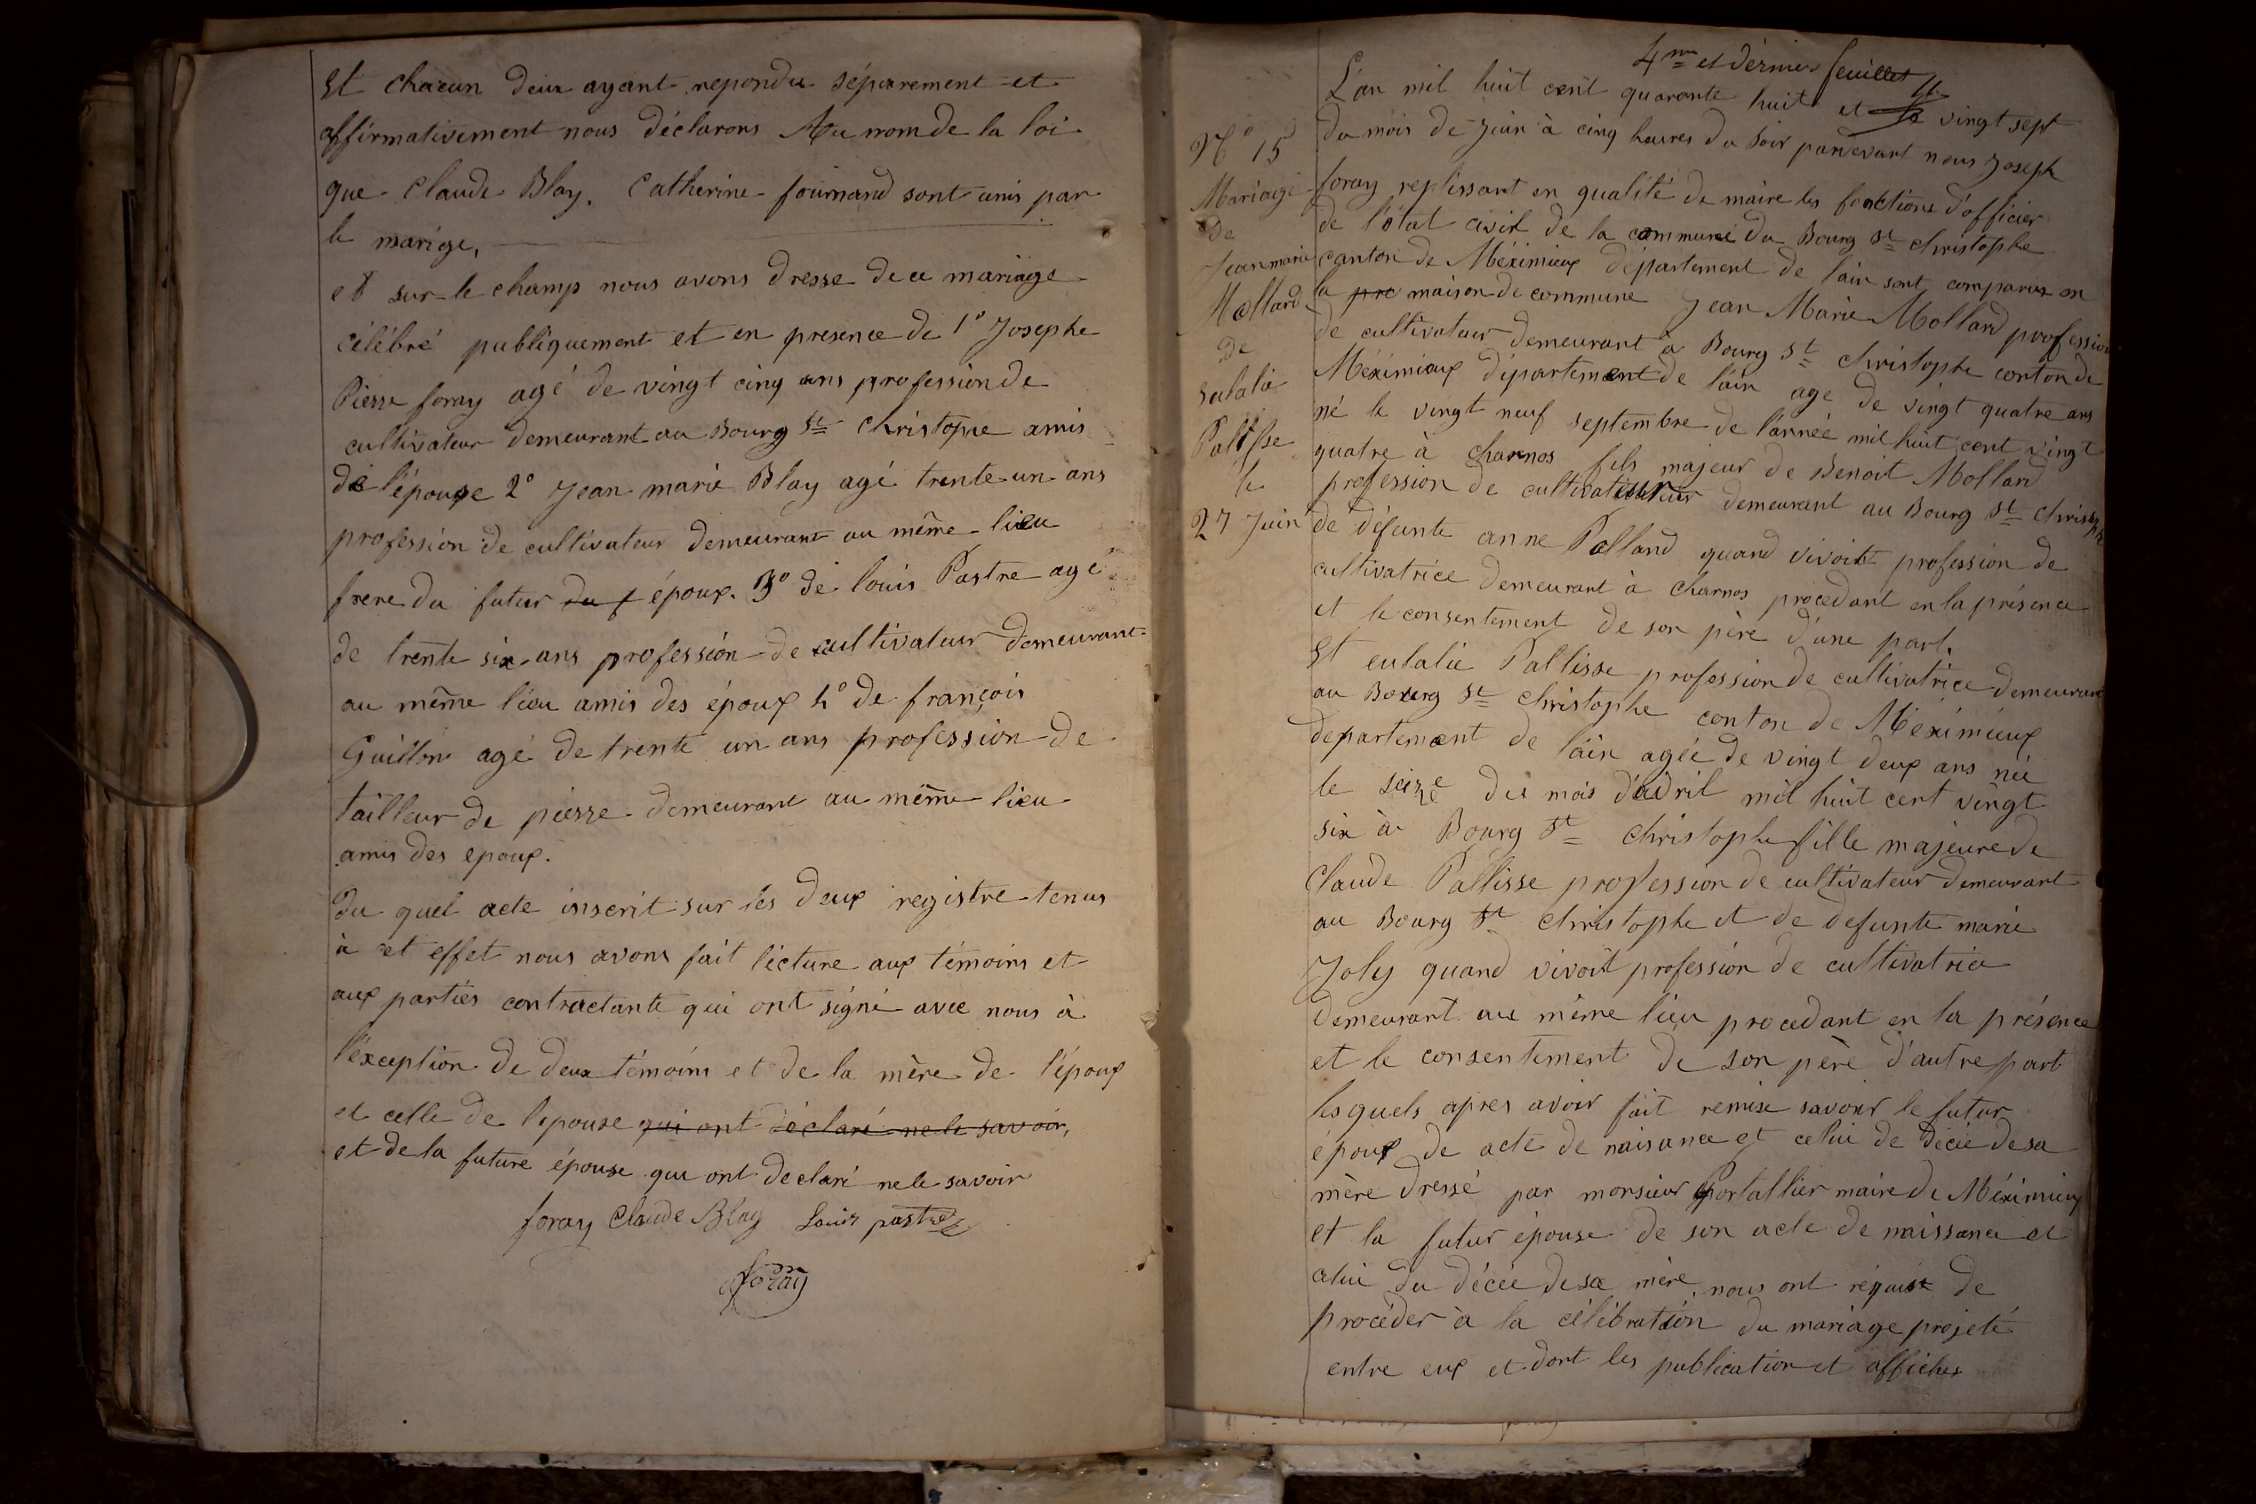 Et chacun deux ayant repondu séparement et
affirmativement nous déclarons Au nom de la loi
que Claude Blay. Catherine fournand sont unis par
le marige,
et sur le champ nous avons dresse de ce mariage
célébré publiquement et en presence de 1° Josephe
Pierre foray agé de vingt cinq ans profession de
cultivateur demeurant au Bourg St christophe amis
de l'épouse 2° Jean marie Blay agé trente un ans
profession de cultivateur demeurant au même lieu
frere du futur du f époux. 3° de louis Pastre agé
de trente six ans profession de cultivateur demeurant
au même lieu amis des époux 4° de françois
Guillon agé de trente un ans profession de
tailleur de pierre demeurant au même lieu
amis des epoux.
du quel acte inscrit sur les deux registre tenus
à cet effet nous avons fait lécture aux témoins et
aux parties contractante qui ont signé avec nous à
l'éxception de deux témoins et de la mère de l'époux
et celle de lepouse qui ont déclaré ne le savoir,
et de la future épouse qui ont declaré ne le savoir
foray Claude Blay Louis pastre
foray
4me et dérnier feuillet
N° 15
Mariage
De
Jean marie
Mollard
De
eulalie
Pallisse
le
27 Juin
L'an mil huit cent quarante huit et le vingt sept
du mois de Juin à cinq heures du soir pardevant nous Joseph
foray replissant en qualité de maire les fonctions d'officier
de l'état civil de la commune du Bourg St christophe
canton de Méximieux département de lain sont comparus en
la pre maison de commune Jean Marie Mollard profession
de cultivateur demeurant à Bourg St christophe conton de
Méximieux département de lain age de vingt quatre ans
né le vingt neuf septembre de l'année mil huit cent vingt
quatre à charnos fils majeur de Benoit Mollard
profession de cultivateur demeurant au Bourg St christophe
de défunte anne Polland quand vivoit profession de
cultivatrice demeurant à charnos procedant en la présence
et le consentement de son père d'une part.
Et eulalie Pallisse profession de cultivatrice demeurant
au Bourg St christophe conton de Méximieux
departement de l'ain agée de vingt deux ans née
le seize du mois d'avril mil huit cent vingt
six à Bourg St christophe fille majeure de
Claude Pallisse profession de cultivateur demeurant
au Bourg St christophe et de defunte marie
Joly quand vivoit profession de cultivatrice
demeurant au même lieu procedant en la présence
et le consentement de son père d'autre part
lesquels apres avoir fait remise savoir le futur
époux de acte de naisance et celui de décée de sa
mère dressé par monsieur Portallier maire de Méximieux
et la futur épouse de son acte de naissance et
celui du décée de sa mère, nous ont réquist de
procéder à la célébration du mariage projeté
entre eux et dont les publication et affiches